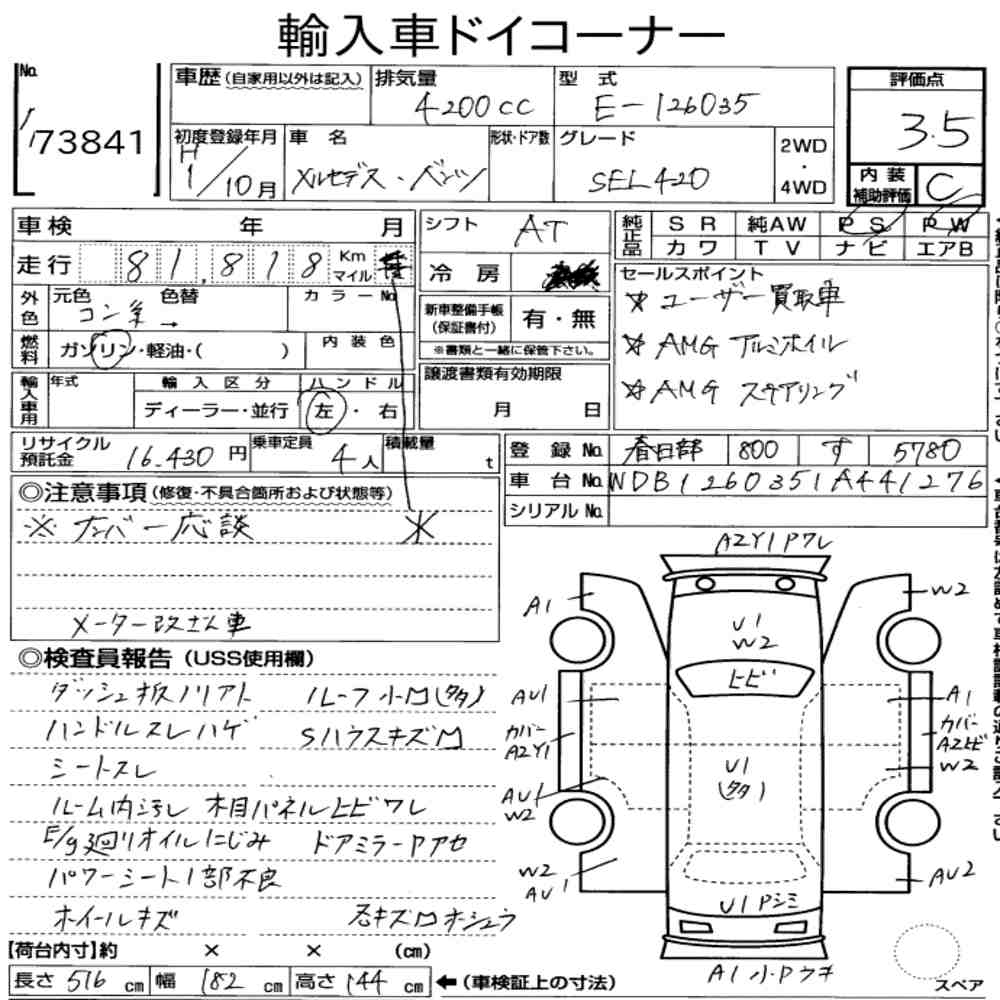 輸入車ドイコーナー
No.
73841
車歴(自家用以外は記入)
排気量
4200cc
型 式
E-126035
評価点
3.5
初度登録年月
H
1/10月
車 名
メルセデス・ベンツ
形状・ドア数
グレード
SEL420
2WD
・
4WD
内 装
補助評価
C
車検 年 月
シフト
AT
純正品
S R 純AW P S P W
カワ T V ナビ エアB
走行 81,818 Km
マイル
冷 房
セールスポイント
* ユーザー買取車
* AMG アルミホイル
* AMG ステアリング
外色
元色 色替
コン
カラーNo.
新車整備手帳
(保証書付)
有・無
※書類と一緒に保管下さい。
燃料
ガソリン・軽油・( )
内 装 色
輸入車用
年式
輸 入 区 分
ディーラー・並行
ハ ン ド ル
左・右
譲渡書類有効期限
月 日
リサイクル
預託金
16,430 円
乗車定員
4人
積載量
t
登 録 No.
春日部 800 す 5780
車 台 No.
WDB1260351A441276
シリアル No.
◎注意事項(修復・不具合箇所および状態等)
※ ナンバー応談
*
メーター改ざん車
◎検査員報告(USS使用欄)
ダッシュ板ノリアト ルーフ小凹(多々)
ハンドルスレハゲ Sハウスキズ凹
シートスレ
ルーム内汚れ 木目パネルヒビワレ
E/g廻りオイルにじみ ドアミラーPアセ
パワーシート1部不良
ホイールキズ 各キズ凹ホシュウ
【荷台内寸】約 × × (cm)
長さ 516 cm 幅 182 cm 高さ 144 cm ←(車検証上の寸法)
A2Y1Pワレ
A1
W2
U1
W2
ヒビ
AU1
A1
カバー
A2Y1
カバー
A2ヒビ
U1
(多々)
W2
AU1
W2
W2
AU1
AU2
U1Pシミ
A1小Pウキ
スペア